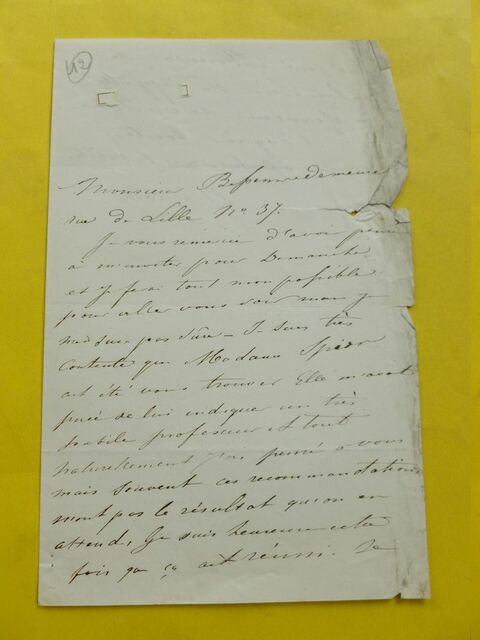 42
Monsieur demeure
rue de Lille No 37.
Je vous remercie d'avoir pensé
à m'inviter pour Dimanche
et je ferai tout mon possible
pour aller vous voir mais je
n'en suis pas sûre - Je suis très
contente que Madame Spier
ait été vous trouver Elle m'avait
priée de lui indiquer un très
habile professeur et tout
naturellement j'ai pensé à vous
mais souvent ces recommandations
n'ont pas le résultat qu'on en
attend, Je suis heureuse cette
fois que ça ait réussi. Je